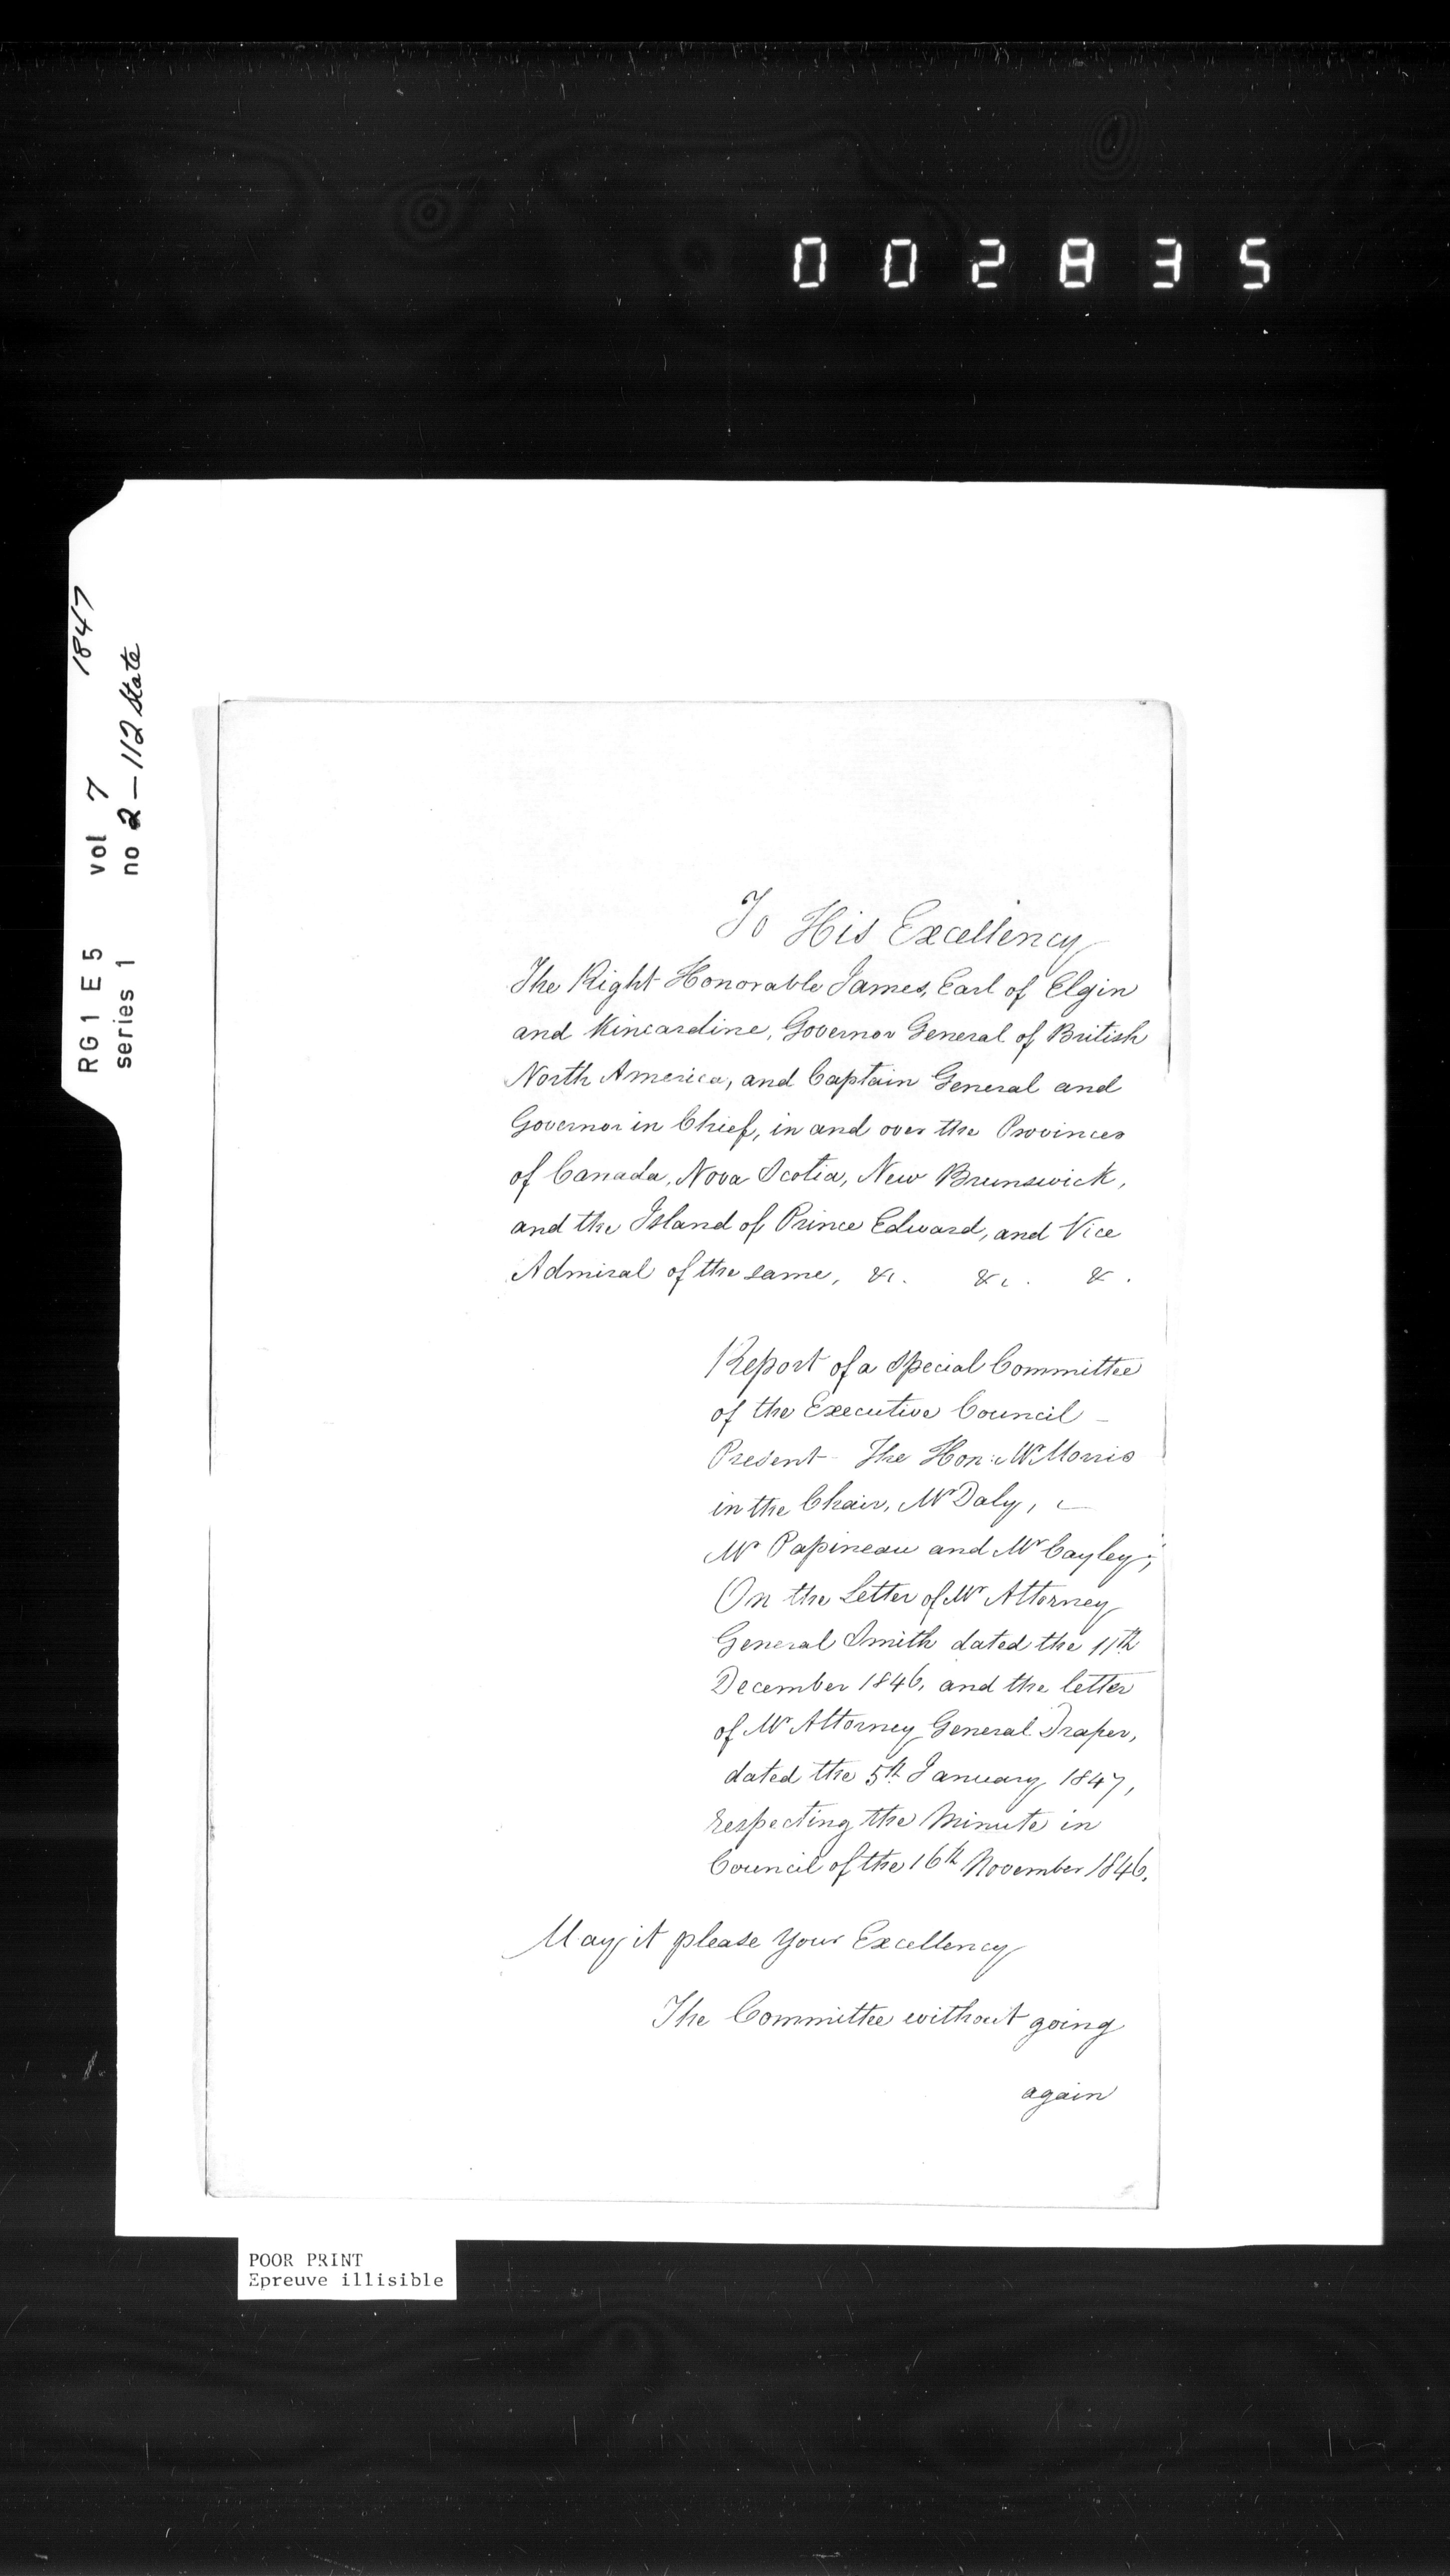 002835
RG1 E5 vol 7 1847
series 1 no 2-112 State
To His Excellency
The Right Honorable James, Earl of Elgin
and Kincardine, Governor General of British
North America, and Captain General and
Governor in Chief, in and over the Provinces
of Canada, Nova Scotia, New Brunswick,
and the Island of Prince Edward, and Vice
Admiral of the same, &c. &c. &.
Report of a Special Committee
of the Executive Council –
Present – The Hon: Mr Morris
in the Chair, Mr Daly, –
Mr Papineau and Mr Cayley;
On the Letter of Mr Attorney
General Smith dated the 11th
December 1846, and the letter
of Mr Attorney General Draper,
dated the 5th January 1847,
respecting the Minute in
Council of the 16th November 1846.
May it please Your Excellency
The Committee without going
again
POOR PRINT
Epreuve illisible